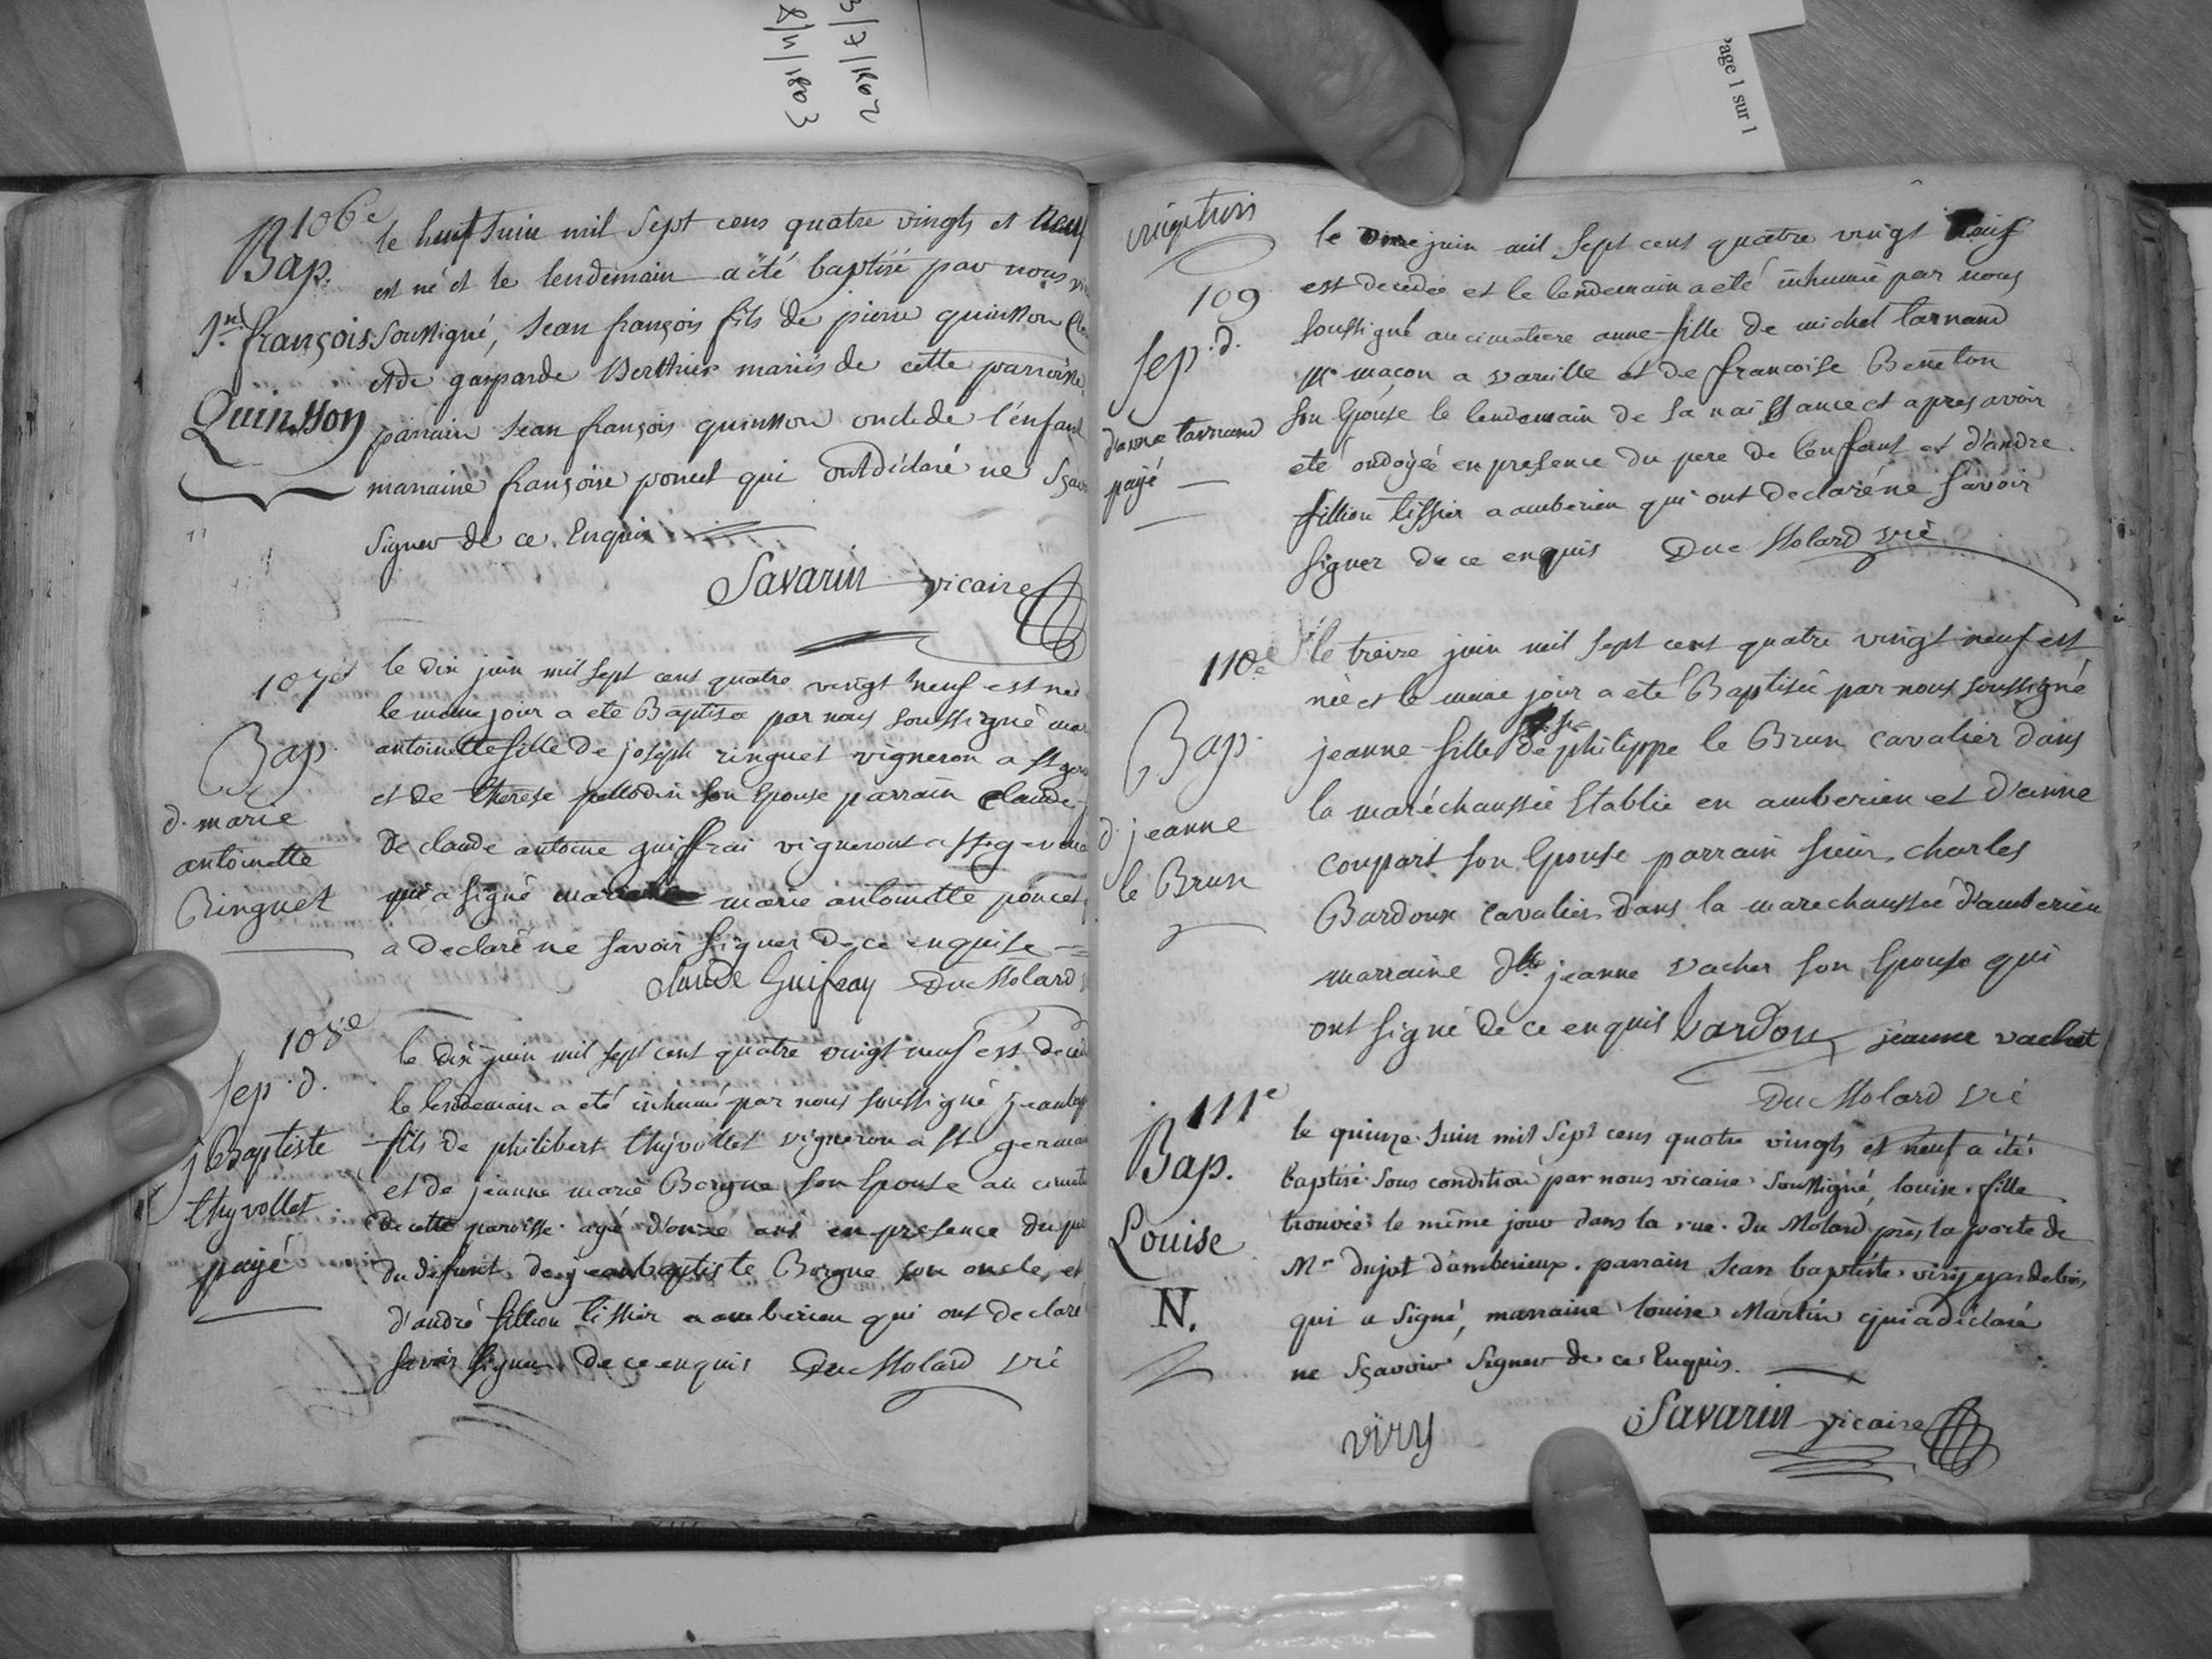 3/7/1802
8/11/1803
Page 1 sur 1
106e
Bap.
Jn. françois
Quinsson
le huit Juin mil Sept cens quatre vingts et neuf
est né et le lendemain a été baptisé par nous
soussigné, Jean françois fils de pierre quinsson
et de gasparde Berthier mariés de cette parroisse
parrain Jean françois quinsson oncle de l'enfant
marraine françoise poncet qui ont déclaré ne Sçavoir
signer de ce Enquis
Savarin vicaire
107e
Bap
d. marie
antoinette
Ringuet
le dix juin mil sept cent quatre vingt neuf est née
le meme jour a eté Baptisée par nous soussigné
antoinette fille de joseph ringuet vigneron a st
et de therese pellodin son Epouse parrain claude
de claude antoine guiffrai vigneront a st
qui a signé marie antoinette poncet
a declaré ne savoir signer de ce enquise
claude Guifray Du Molard
108e
Sep. d.
j Baptiste
thyvollet
payé
le dix juin mil sept cent quatre vingt neuf est decedé
le lendemain a eté inhumé par nous soussigné
fils de philibert thyvollet vigneron a st germain
et de jeanne marie Borgne son Epouse au
de cette paroisse agé d'onze ans en presence du
du defunt de jean baptiste Borgne son oncle, et
d'andré fillion tissier a amberieu qui ont declaré
savoir signer de ce enquis Du Molard vre
vingt trois
109
Sep. d.
d'anne tarnand
payé
le onze juin mil sept cent quatre vingt neuf
est decedée et le lendemain a eté inhumée par nous
soussigné au cimetiere anne fille de michel tarnand
me maçon a vareille et de francoise Beneton
son Epouse le lendemain de sa naissance et apres avoir
eté ondoyée en presence du pere de l'enfant et d'andre
fillion tissier a amberieu qui ont declaré ne savoir
signer de ce enquis Du Molard vre
110e
Bap.
d. jeanne
le Brun
le treize juin mil sept cent quatre vingt neuf est
née et le meme jour a eté Baptisée par nous soussigné
jeanne fille de philippe le Brun cavalier dans
la maréchaussée Etablie en amberieu et d'anne
coupart son Epouse parrain sieur charles
Bardoux cavalier dans la marechaussée d'amberieu
marraine dlle jeanne vacher son Epouse qui
ont signé de ce enquis Bardou jeanne vachat
Du Molard vre
111e
Bap.
Louise
N.
le quinze Juin mil Sept cens quatre vingts et neuf a été
baptisé sous condition par nous vicaire soussigné, louise fille
trouvée le même jour dans la rue du Molard près la porte de
Mr dujat d'amberieux. parrain Jean baptiste viry garde bois,
qui a signé, marraine louise Martin qui a déclaré
ne sçavoir signer de ce Enquis.
viry
Savarin vicaire